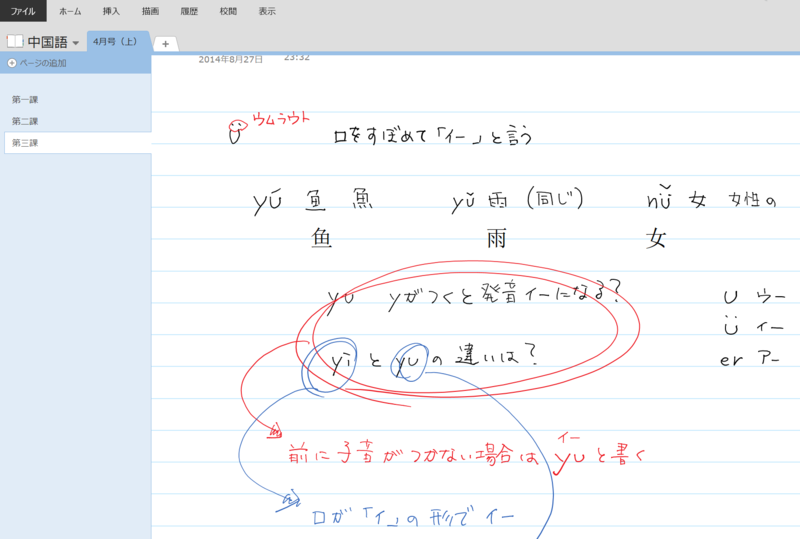 ファイル ホーム 挿入 描画 履歴 校閲 表示
中国語 4月号（上） +
ページの追加
2014年8月27日 23:32
第一課
第二課
第三課
ü ウムラウト 口をすぼめて「イー」と言う
yú 鱼 魚 yǔ 雨 (同じ) nǚ 女 女性の
鱼 雨 女
yu yがつくと発音イーになる?
u ウー
ü イー
yi と yu の違いは?
er アー
イー
前に子音がつかない場合は yu と書く
口が「イ」の形で イー